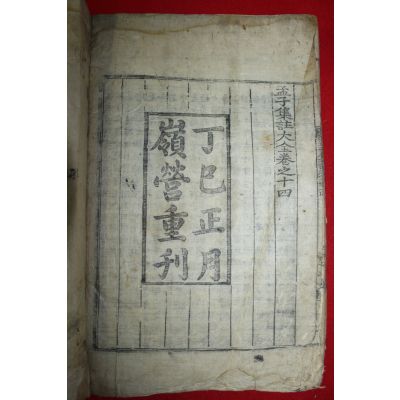 孟子集註大全卷之十四
丁巳正月
嶺營重刊